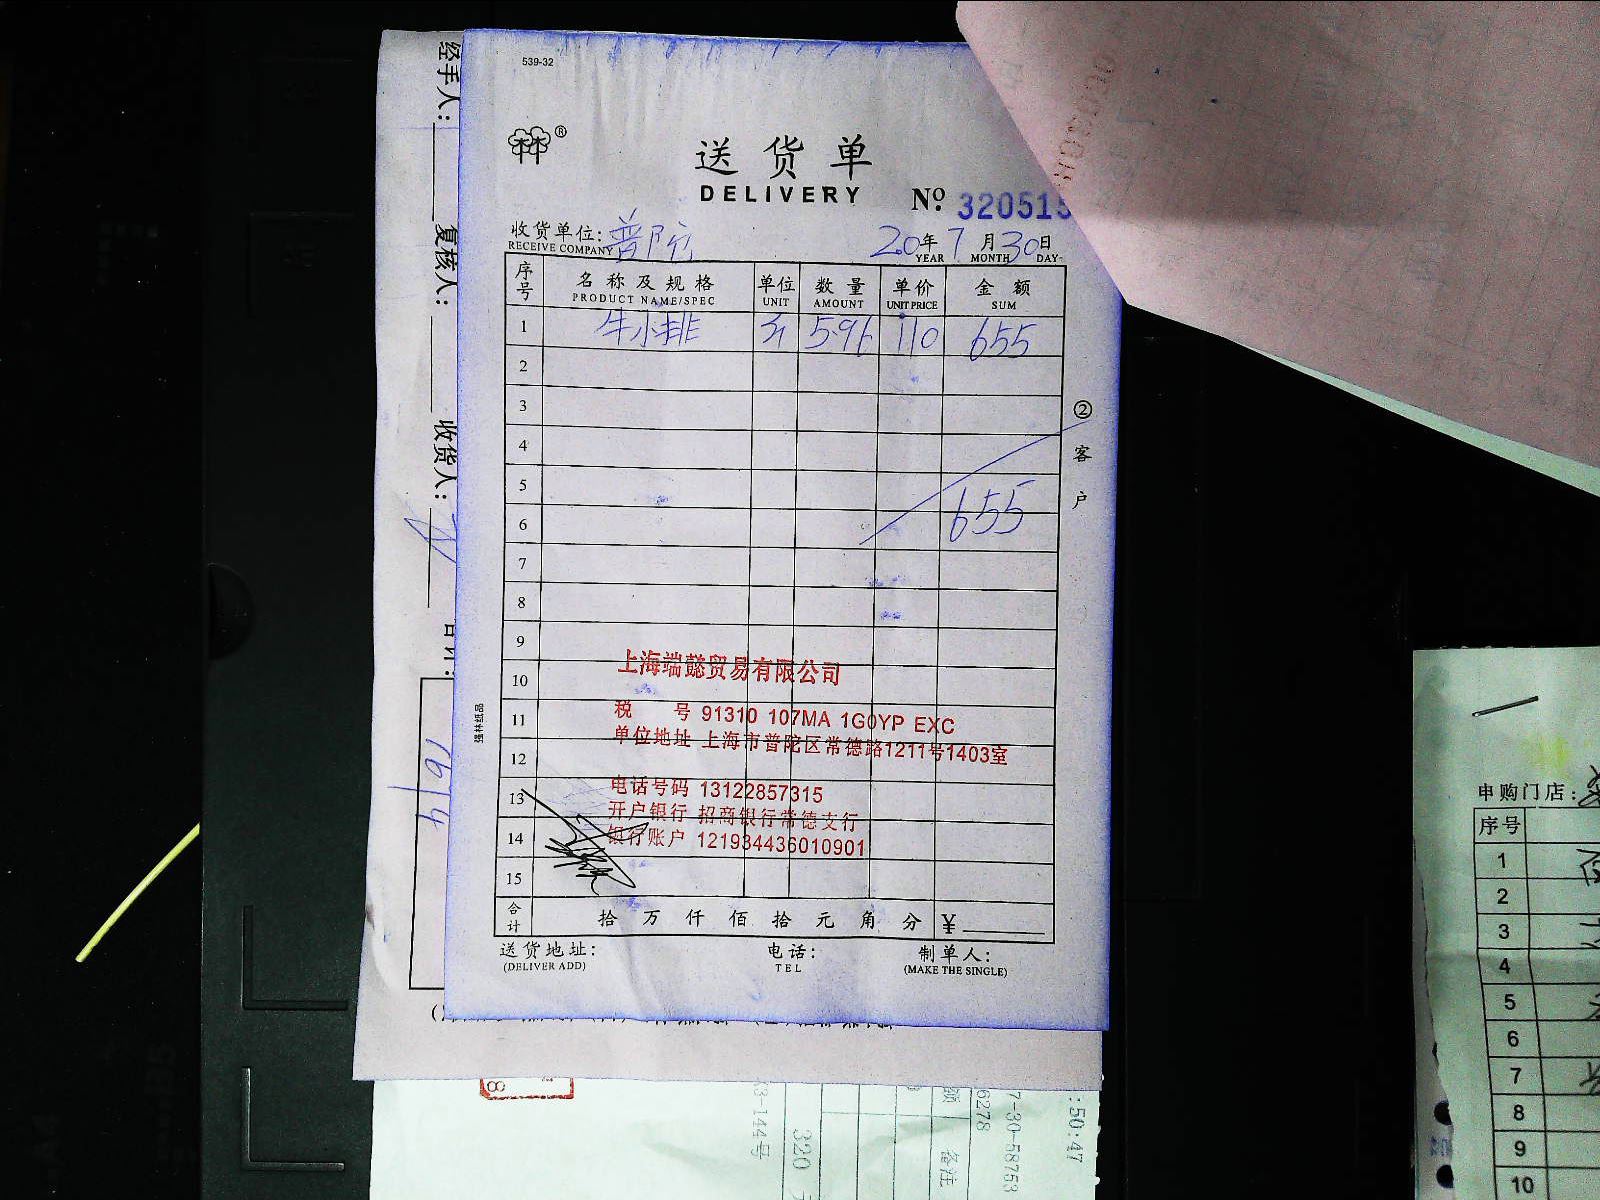 539-32
®
送货单
DELIVERY
№ 320515
收货单位: 普陀
RECEIVE COMPANY
20年 7月 30日
YEAR MONTH DAY
序号 名称及规格 单位 数量 单价 金额
PRODUCT NAME/SPEC UNIT AMOUNT UNIT PRICE SUM
1 牛小排 5.96 110 655
2
3
4
5
6 655
7
8
9
10
11
12
13
14
15
上海端懿贸易有限公司
税 号 91310 107MA 1G0YP EXC
单位地址 上海市普陀区常德路1211号1403室
电话号码 13122857315
开户银行 招商银行常德支行
银行账户 121934436010901
合计 拾 万 仟 佰 拾 元 角 分 ¥
送货地址: 电话: 制单人:
(DELIVER ADD) TEL (MAKE THE SINGLE)
②客户
强林纸品
经手人:
复核人:
收货人:
:50:47
7-30-58753
6278
备注
3-144号
320
申购门店:
序号
1
2
3
4
5
6
7
8
9
10